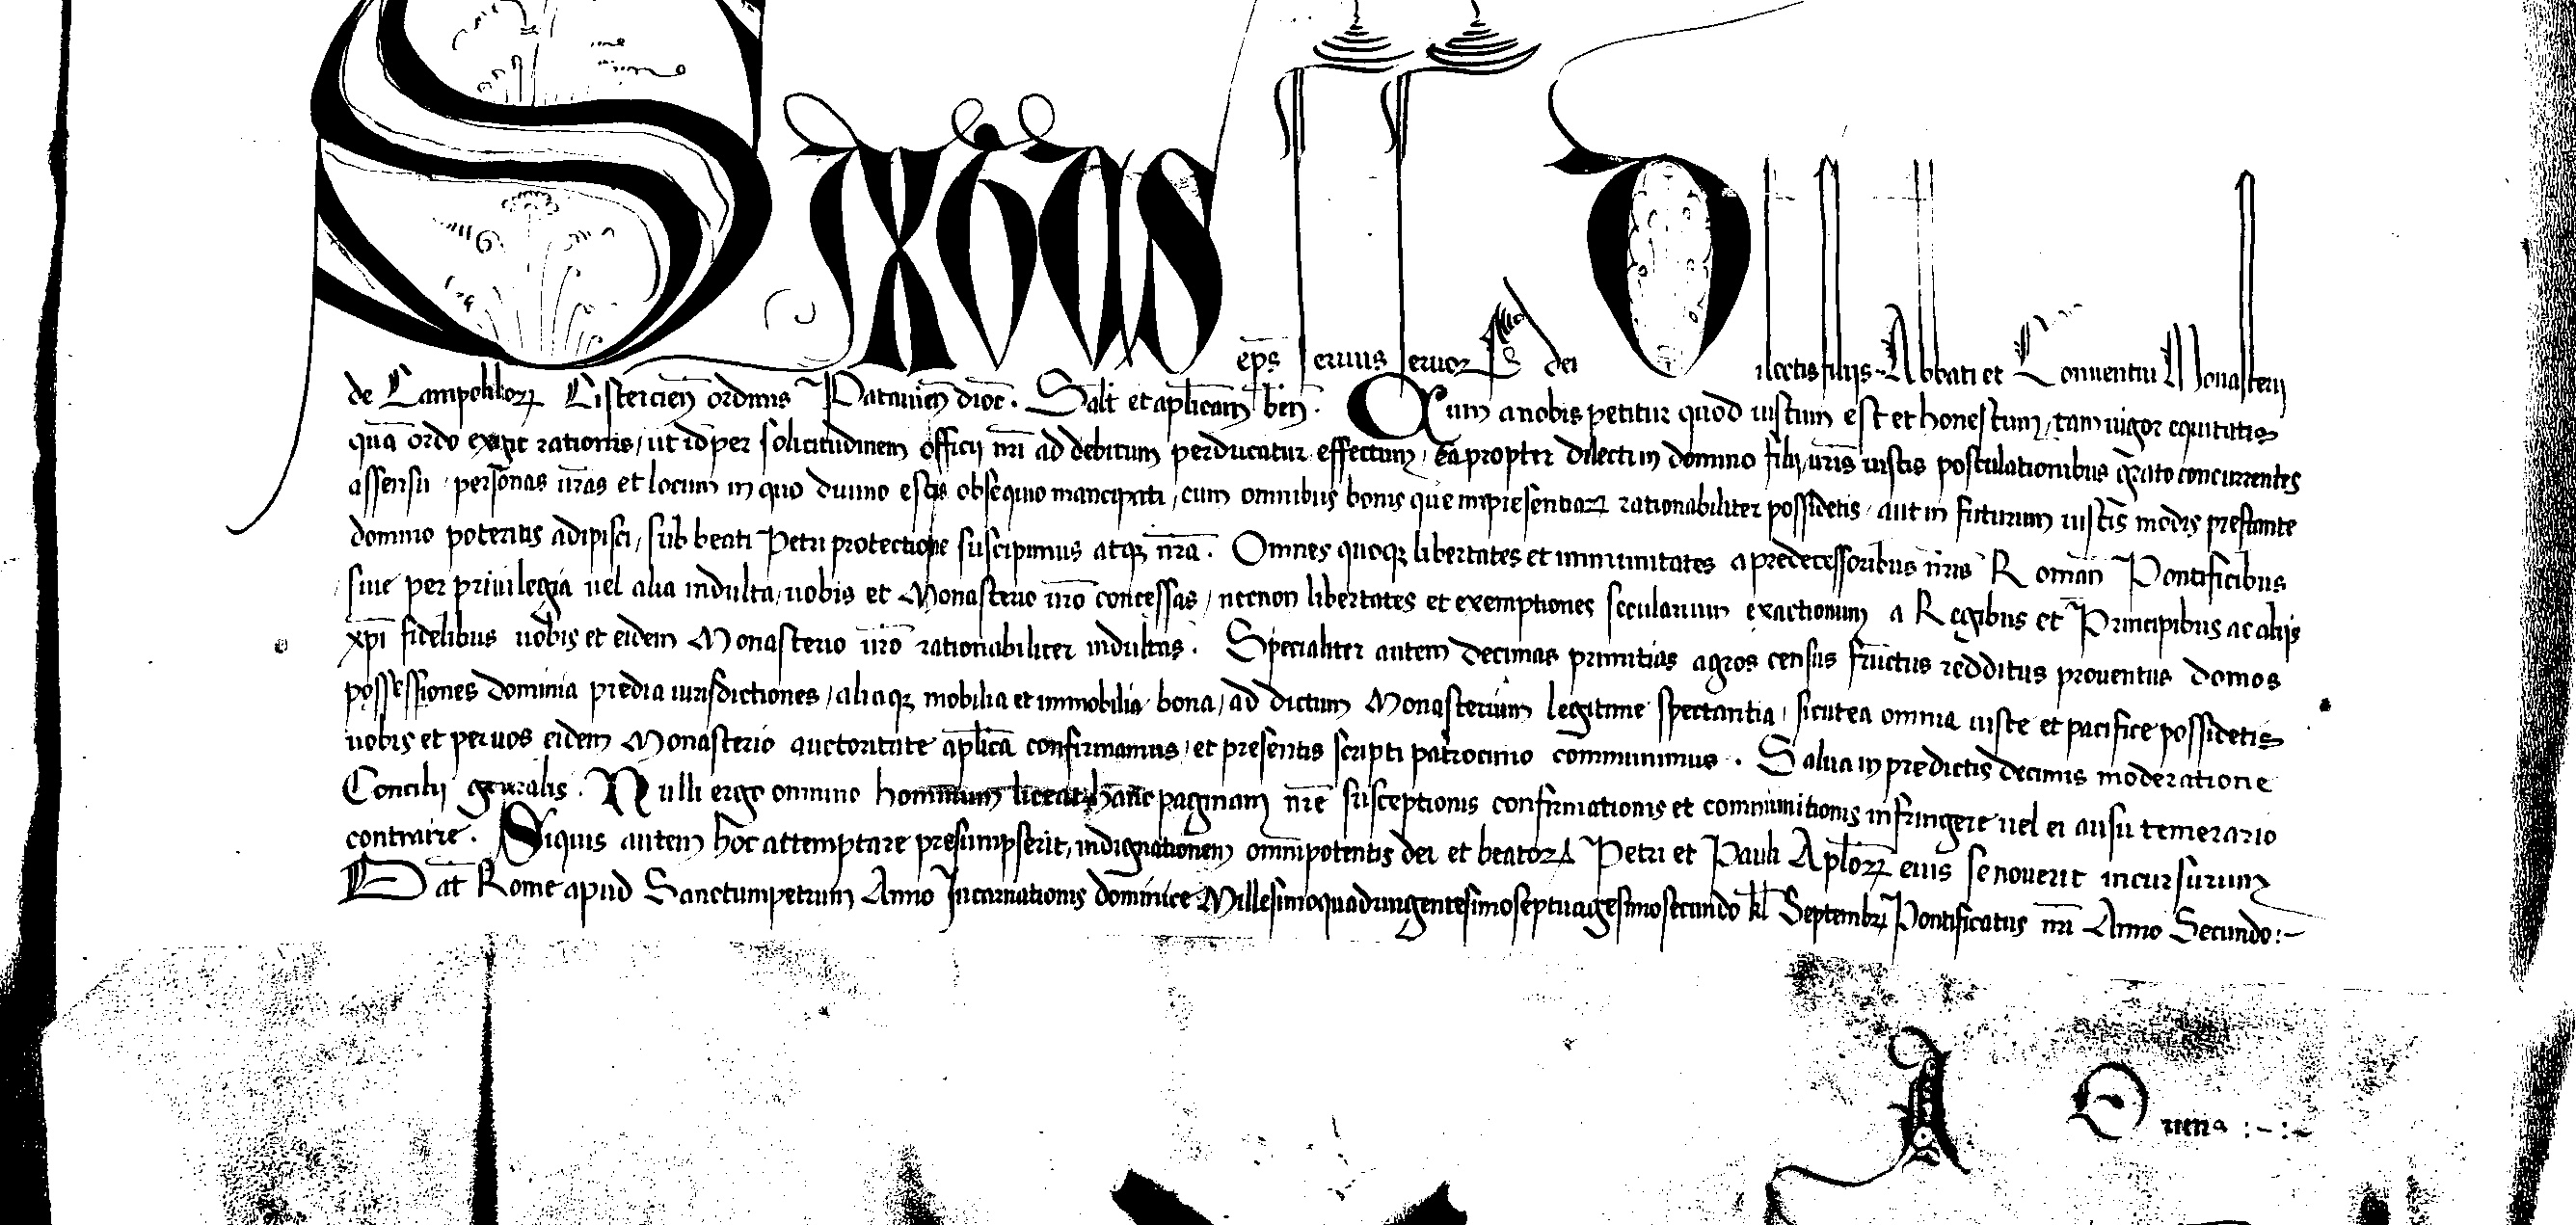 Sixtus ep̄s seruus seruoꝝ dei Dilectis filijs Abbati et Conuentui Monasterij
de Campolilioꝝ Cistercien̄ ordinis Patauien̄ dioc̄. Salt̄ et aplīcam ben̄. Cum a nobis petitur quod iustum est et honestum, tam uigor equitatis
quā ordo exigit rationis, ut id per solicitudinem officij nr̄i ad debitum perducatur effectum, Ea propter dilecti in domino filij, ur̄is iustis postulationibus grato concurrentes
assensu, personas ur̄as et locum in quo diuino estis obsequio mancipati, cum omnibus bonis que inpresentiaꝝ rationabiliter possidetis, aut in futurum iustis modis prestante
domino poteritis adipisci, sub beati Petri protectione suscipimus atqꝫ nr̄a. Omnes quoqꝫ libertates et immunitates a predecessoribus nr̄is Roman̄ Pontificibus
siue per priuilegia uel alia indulta, uobis et Monasterio ur̄o concessas, necnon libertates et exemptiones secularium exactionum a Regibus et Principibus ac alijs
xp̄i fidelibus uobis et eidem Monasterio ur̄o rationabiliter indultas. Specialiter autem decimas primitias agros census fructus redditus prouentus domos
possessiones dominia predia iurisdictiones, aliaqꝫ mobilia et immobilia bona, ad dictum Monasterium legitime spectantia, sicut ea omnia iuste et pacifice possidetis
uobis et per uos eidem Monasterio auctoritate aplīca confirmamus, et presentis scripti patrocinio communimus. Salua in predictis decimis moderatione
Concilij gen̄alis. Nulli ergo omnino hominum liceat hanc paginam nr̄e susceptionis confirmationis et communitionis infringere uel ei ausu temerario
contraire. Siquis autem hoc attemptare presumpserit, indignationem omnipotentis dei et beatoꝝ Petri et Pauli Aplōꝝ eius se nouerit incursurum
Dat̄ Rome apud Sanctumpetrum Anno Incarnationis dominice Millesimoquadringentesimoseptuagesimosecundo kl̄ Septembr̄ Pontificatus nr̄i Anno Secundo:-